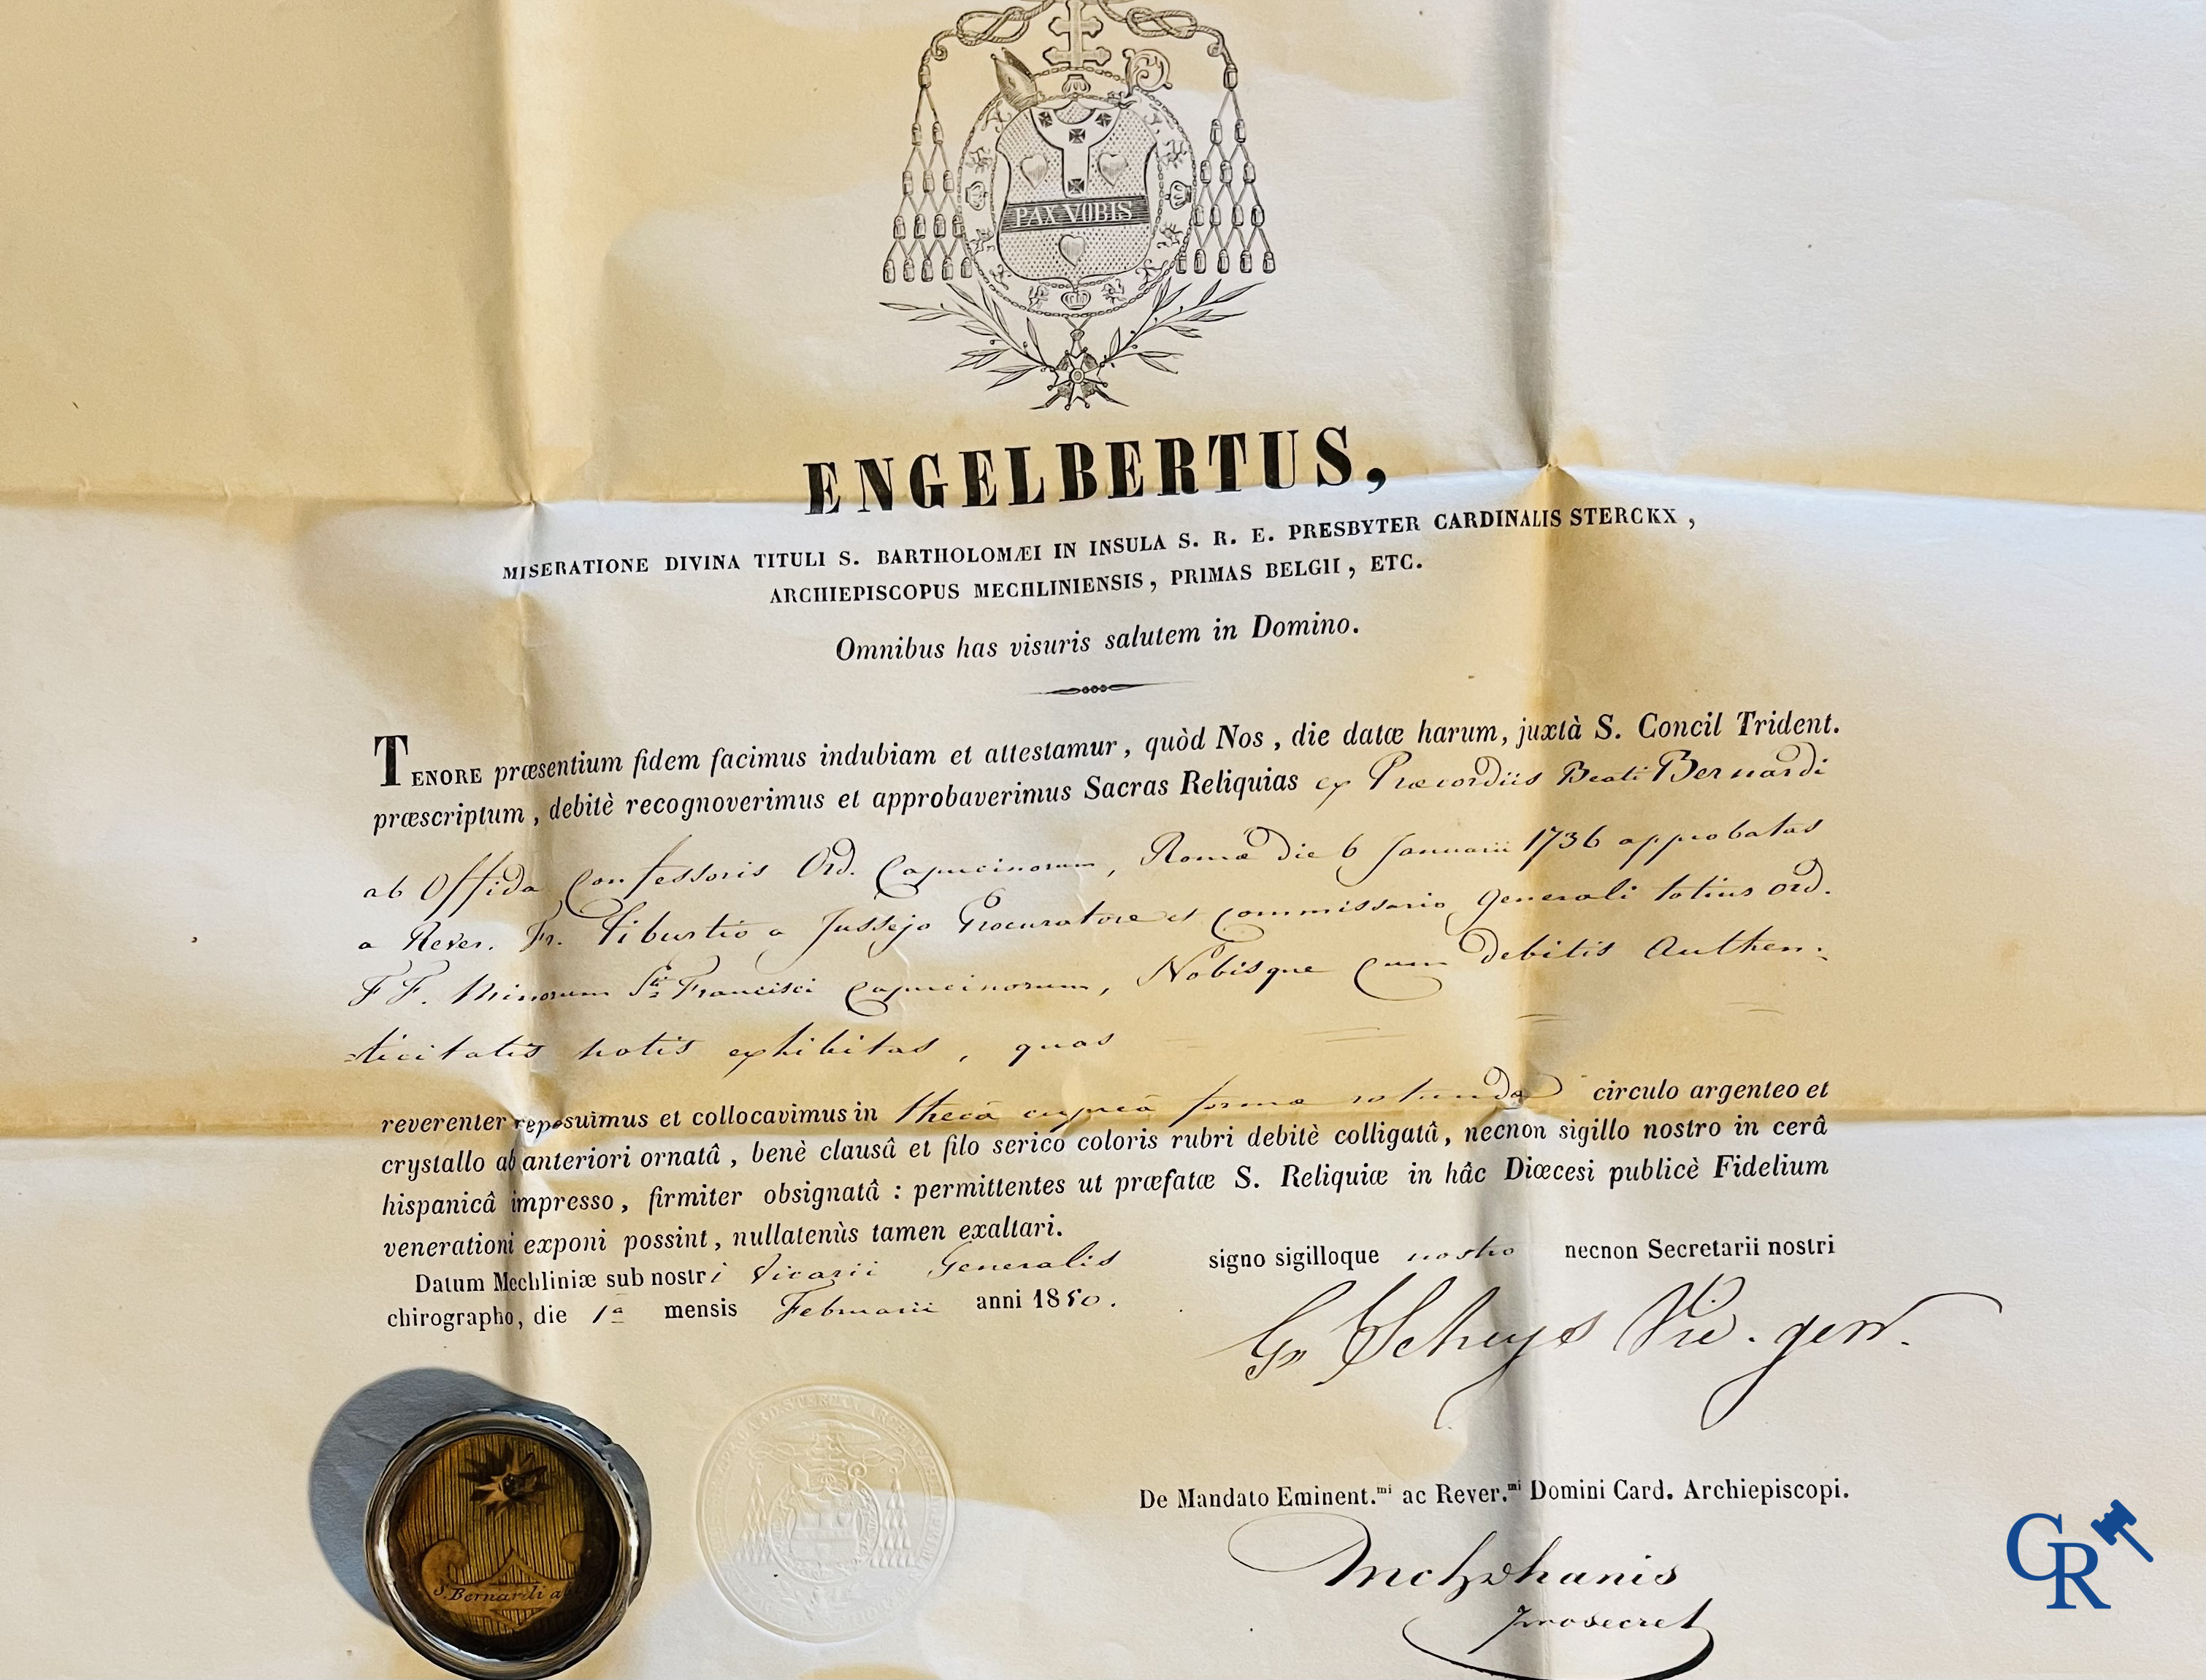 PAX VOBIS
ENGELBERTUS,
MISERATIONE DIVINA TITULI S. BARTHOLOMÆI IN INSULA S. R. E. PRESBYTER CARDINALIS STERCKX ,
ARCHIEPISCOPUS MECHLINIENSIS , PRIMAS BELGII , ETC.
Omnibus has visuris salutem in Domino.
TENORE præsentium fidem facimus indubiam et attestamur, quòd Nos , die datæ harum, juxtà S. Concil Trident.
præscriptum , debitè recognoverimus et approbaverimus Sacras Reliquias ex Præcordiis Beati Bernardi
ab Offida Confessoris Ord. Capucinorum, Romæ die 6 Januarii 1736 approbatas
a Rever. Fr. Tiburtio a Jussejo Procuratore et Commissario Generali totius Ord.
F F. Minorum Sti Francisci Capucinorum, Nobisque cum debitis Authen:
ticitatis notis exhibitas , quas
reverenter reposuimus et collocavimus in thecâ cupreâ formæ rotundæ circulo argenteo et
crystallo ab anteriori ornatâ , benè clausâ et filo serico coloris rubri debitè colligatâ, necnon sigillo nostro in cerâ
hispanicâ impresso, firmiter obsignatâ : permittentes ut præfatæ S. Reliquiæ in hâc Diœcesi publicè Fidelium
venerationi exponi possint, nullatenùs tamen exaltari.
Datum Mechliniæ sub nostri Vicarii Generalis signo sigilloque nostro necnon Secretarii nostri
chirographo, die 1ª mensis Februarii anni 1850.
Vic. gen.
De Mandato Eminent.mi ac Rever.mi Domini Card. Archiepiscopi.
prosecret
S. Bernardi a
CR